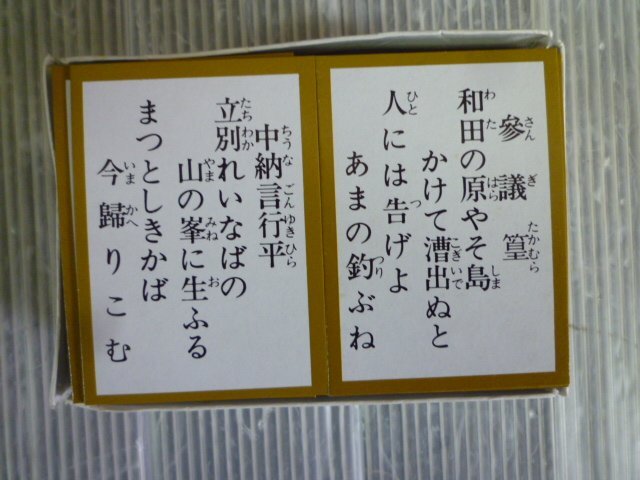 參議篁
和田の原やそ島
かけて漕出ぬと
人には告げよ
あまの釣ぶね
中納言行平
立別れいなばの
山の峯に生ふる
まつとしきかば
今歸りこむ